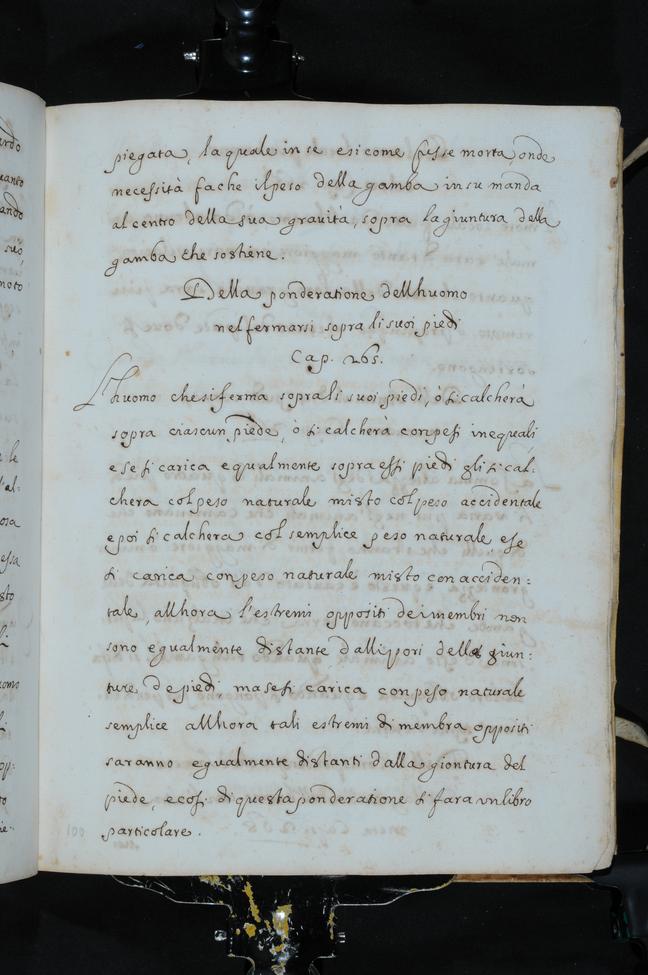 piegata, la quale in se e si come fusse morta, onde
necessità fa che il peso della gamba in su manda
al centro della sua gravità, sopra la giuntura della
gamba che sostiene.
Della ponderatione dell huomo
nel fermarsi sopra li suoi piedi
Cap. 265.
L'huomo che si ferma sopra li suoi piedi, ò si calcherà
sopra ciascun piede, ò si calcherà con pesi inequali,
e se si carica equalmente sopra essi piedi gli si cal:
chera col peso naturale misto col peso accidentale
e poi si calchera col semplice peso naturale, e se
si carica con peso naturale misto con acciden:
tale, allhora l'estremi oppositi dei membri non
sono egualmente distante dalli pori delle giun:
ture de piedi, ma se si carica con peso naturale
semplice allhora tali estremi di membra oppositi
saranno egualmente distanti dalla giontura del
piede, e cosi di questa ponderatione si fara un libro
particolare.
100